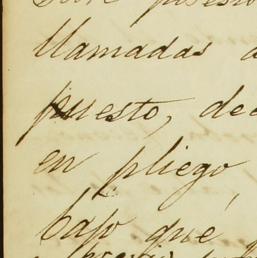 llamadas a
puesto, dec
en pliego
bajo que